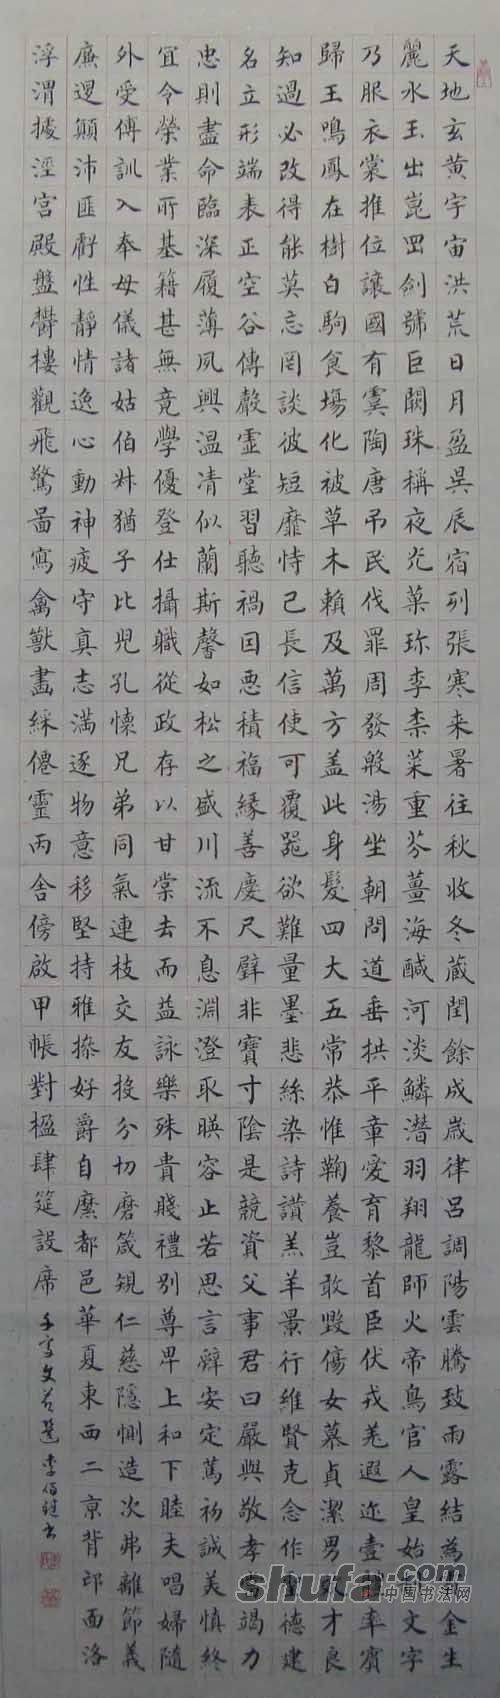 天地玄黃宇宙洪荒日月盈昃辰宿列張寒来暑往秋收冬藏閏餘成歲律呂調陽雲騰致雨露結為金生
麗水玉出崑岡劍號巨闕珠稱夜光菓珎李柰菜重芥薑海鹹河淡鱗潛羽翔龍師火帝鳥官人皇始文字
乃服衣裳推位讓國有虞陶唐弔民伐罪周發殷湯坐朝問道垂拱平章愛育黎首臣伏戎羌遐迩壹率賓
歸王鳴鳳在樹白駒食場化被草木賴及萬方盖此身髮四大五常恭惟鞠養豈敢毀傷女慕貞潔男效才良
知過必改得能莫忘罔談彼短靡恃己長信使可覆器欲難量墨悲絲染詩讃羔羊景行維賢克念作聖德建
名立形端表正空谷傳聲虛堂習聽禍因惡積福緣善慶尺璧非寶寸陰是競資父事君曰嚴與敬孝當竭力
忠則盡命臨深履薄夙興温凊似蘭斯馨如松之盛川流不息淵澄取暎容止若思言辭安定篤初誠美慎終
宜令榮業所基籍甚無竟學優登仕攝職從政存以甘棠去而益詠樂殊貴賤禮別尊卑上和下睦夫唱婦隨
外受傅訓入奉母儀諸姑伯叔猶子比兒孔懷兄弟同氣連枝交友投分切磨箴規仁慈隱惻造次弗離節義
廉退顛沛匪虧性靜情逸心動神疲守真志滿逐物意移堅持雅操好爵自縻都邑華夏東西二京背邙面洛
浮渭據涇宮殿盤欝樓觀飛驚啚寫禽獸畫綵僊靈丙舍傍啟甲帳對楹肆筵設席
千字文節選 李佰書
shufa.com
中国书法网